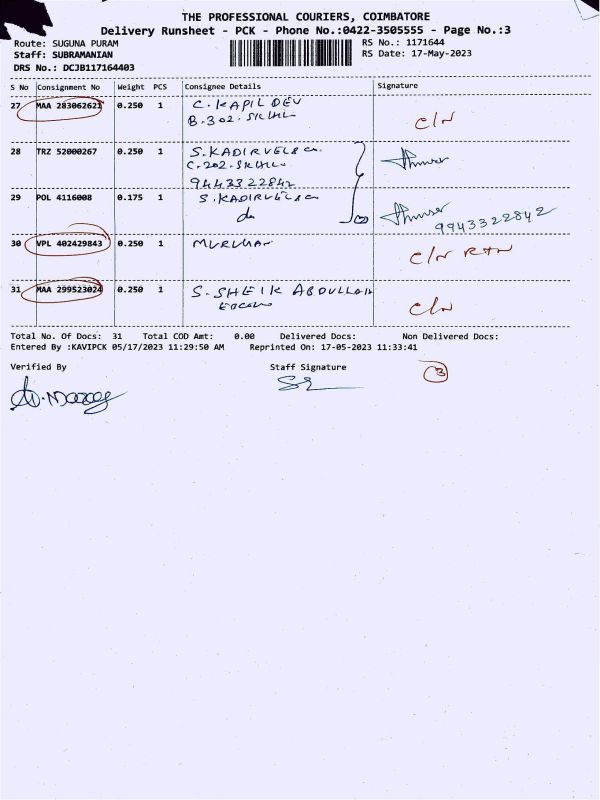 THE PROFESSIONAL COURIERS, COIMBATORE
Delivery Runsheet - PCK - Phone No.:0422-3505555 - Page No.:3
Route: SUGUNA PURAM
RS No.: 1171644
Staff: SUBRAMANIAN
RS Date: 17-May-2023
DRS No.: DCJB117164403
S No Consignment No Weight PCS Consignee Details Signature
27 MAA 283062621 0.250 1 C. KAPIL DEV
B.302.
C/N
28 TRZ 52000267 0.250 1 S. KADIRVEL
C.202.
9443322842
29 POL 4116008 0.175 1 S. KADIRVEL
do
9943322842
30 VPL 402429843 0.250 1 MURUGAN
C/N RTN
31 MAA 299523024 0.250 1 S. SHEIK ABDULLAH
C/N
Total No. Of Docs: 31 Total COD Amt: 0.00 Delivered Docs: Non Delivered Docs:
Entered By :KAVIPCK 05/17/2023 11:29:50 AM Reprinted On: 17-05-2023 11:33:41
Verified By Staff Signature
3